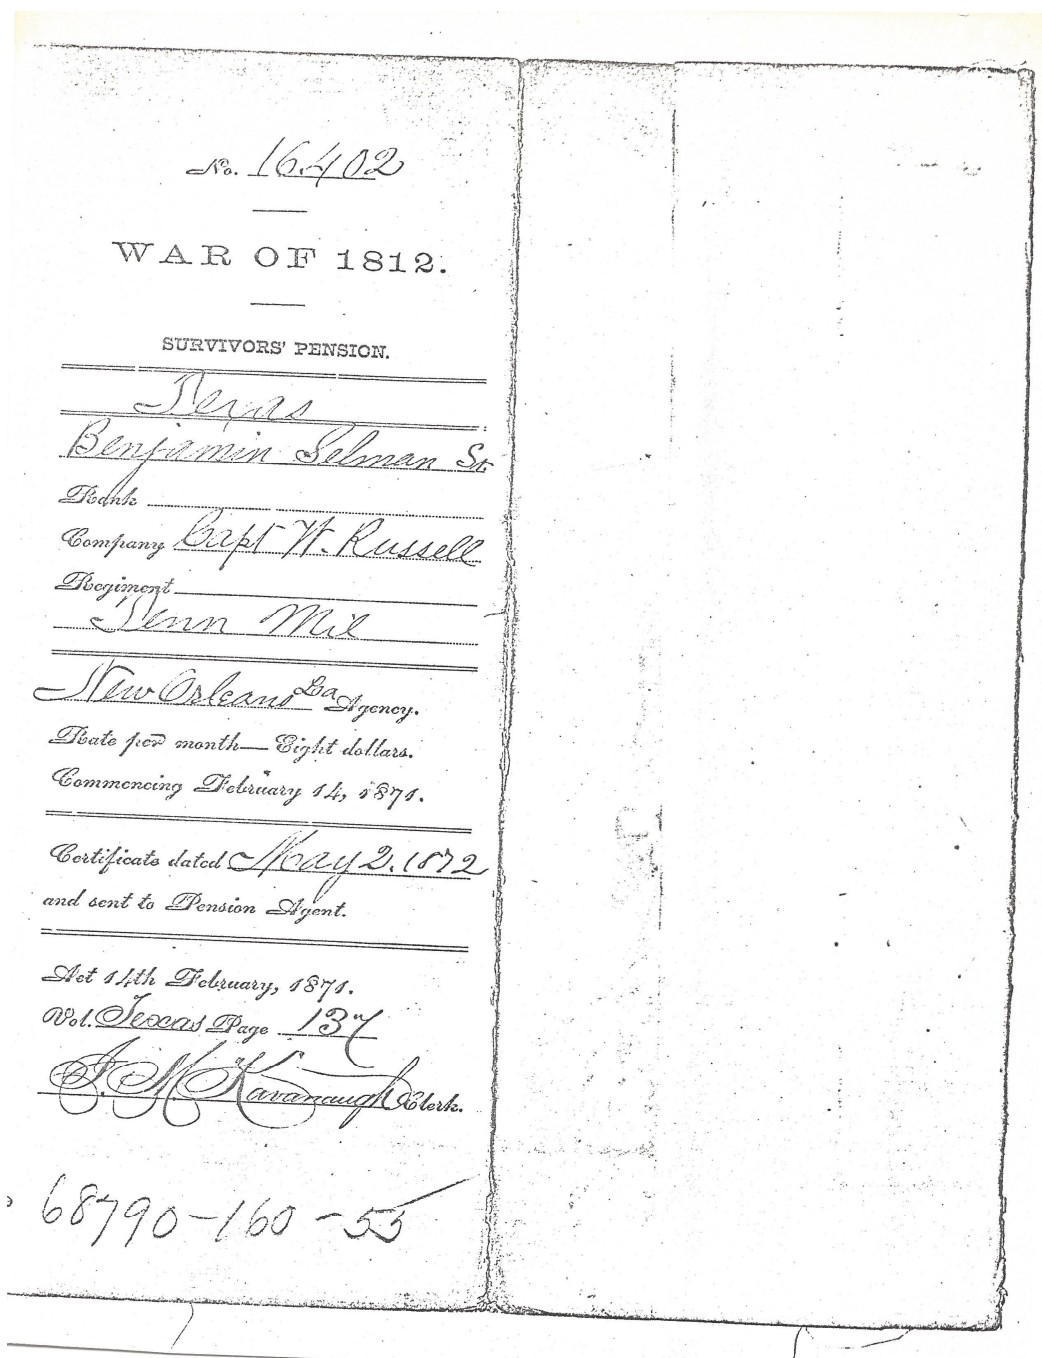 No. 16402
WAR OF 1812.
SURVIVORS' PENSION.
Texas
Benjamin Selman Sr
Rank
Company Capt W. Russell
Regiment
Tenn Mil
New Orleans La Agency.
Rate per month — Eight dollars.
Commencing February 14, 1871.
Certificate dated May 2. 1872
and sent to Pension Agent.
Act 14th February, 1871.
Vol. Texas Page 137
J. M. Kavanaugh Clerk.
68790-160-55